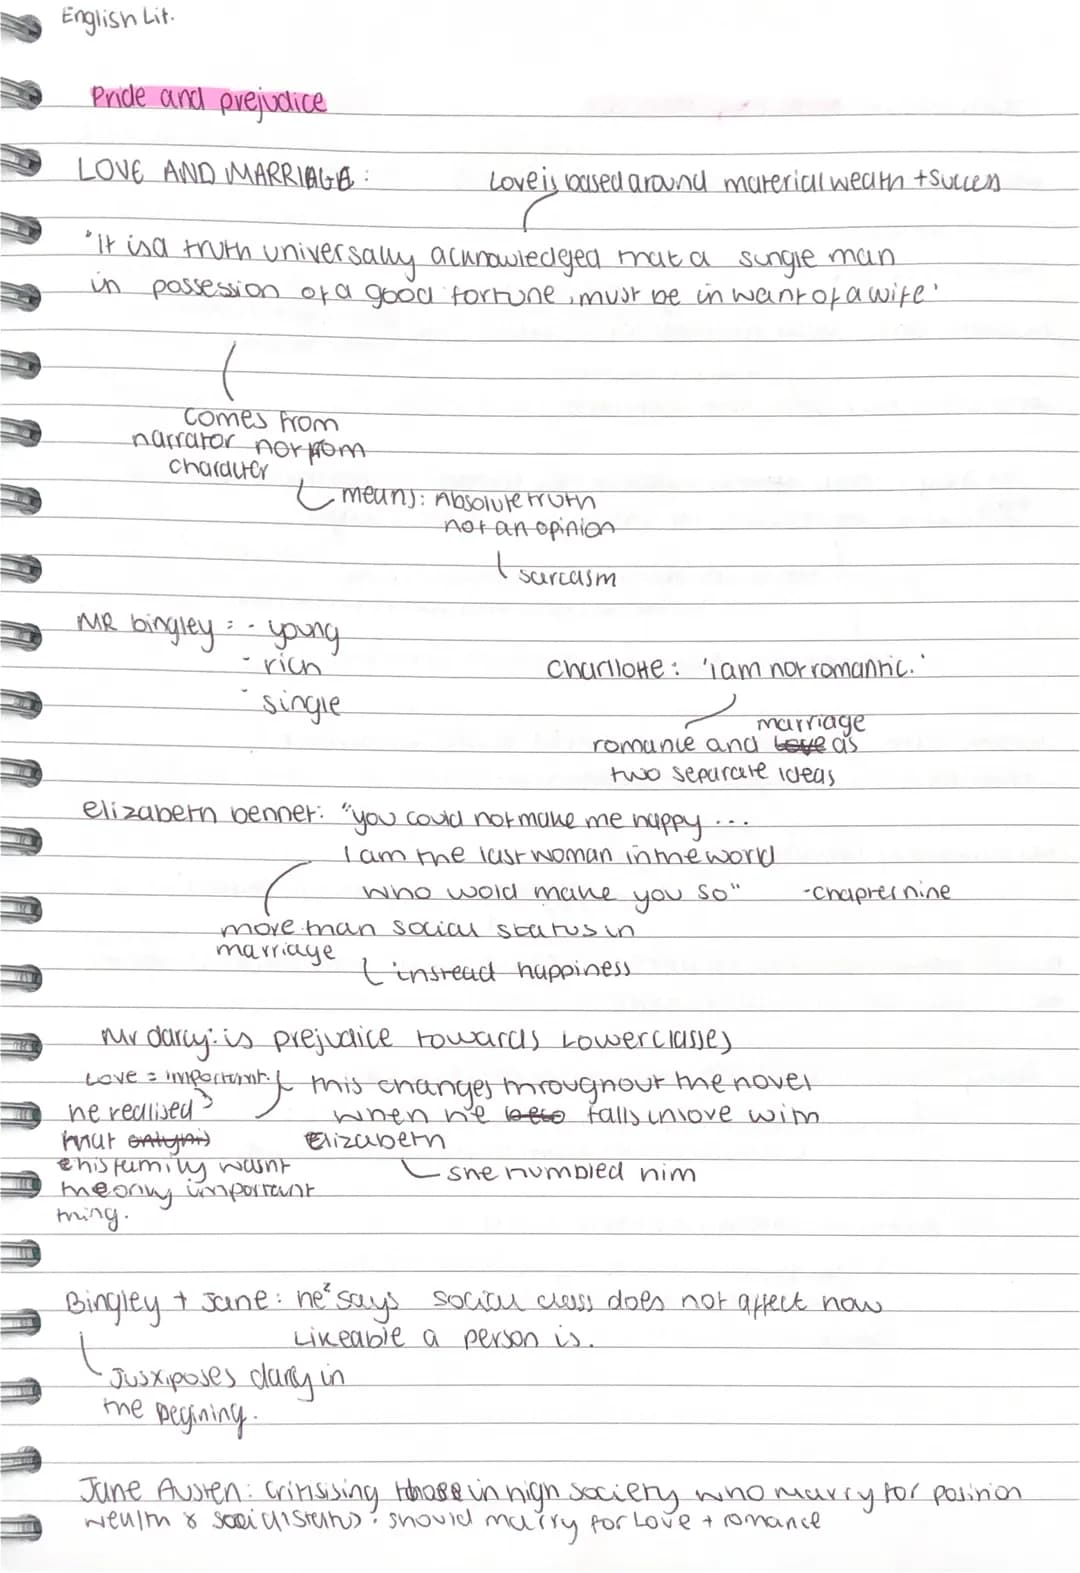 English Lit.
Pride and prejudice
LOVE AND MARRIAGE :
Love is based around material wealth + success
"It is a truth universally acknowledged that a single man
in possession of a good fortune, must be in want of a wife'
comes from
narrator not from
character
means: Absolute truth
not an opinion
sarcasm
MR bingley : - young
- rich
- single
Charllotte : 'i am not romantic.'
marriage
romance and love as
two separate ideas
elizabeth bennet: "you could not make me happy ...
I am the last woman in the world
who wold make you so" -chapter nine
more than social status in
marriage
instead happiness
Mr darcy: is prejudice towards Lower classes
Love = important.
this changes throughout the novel
he realised
when he falls in love with
that only his
Elizabeth
his family wasnt
she humbled him
the only important
thing.
Bingley + Jane: he says social class does not affect how
Likeable a person is.
Jusxiposes darcy in
the begining.
Jane Austen: Critisising those in high society who marry for position
wealth & social status : should marry for Love + romance